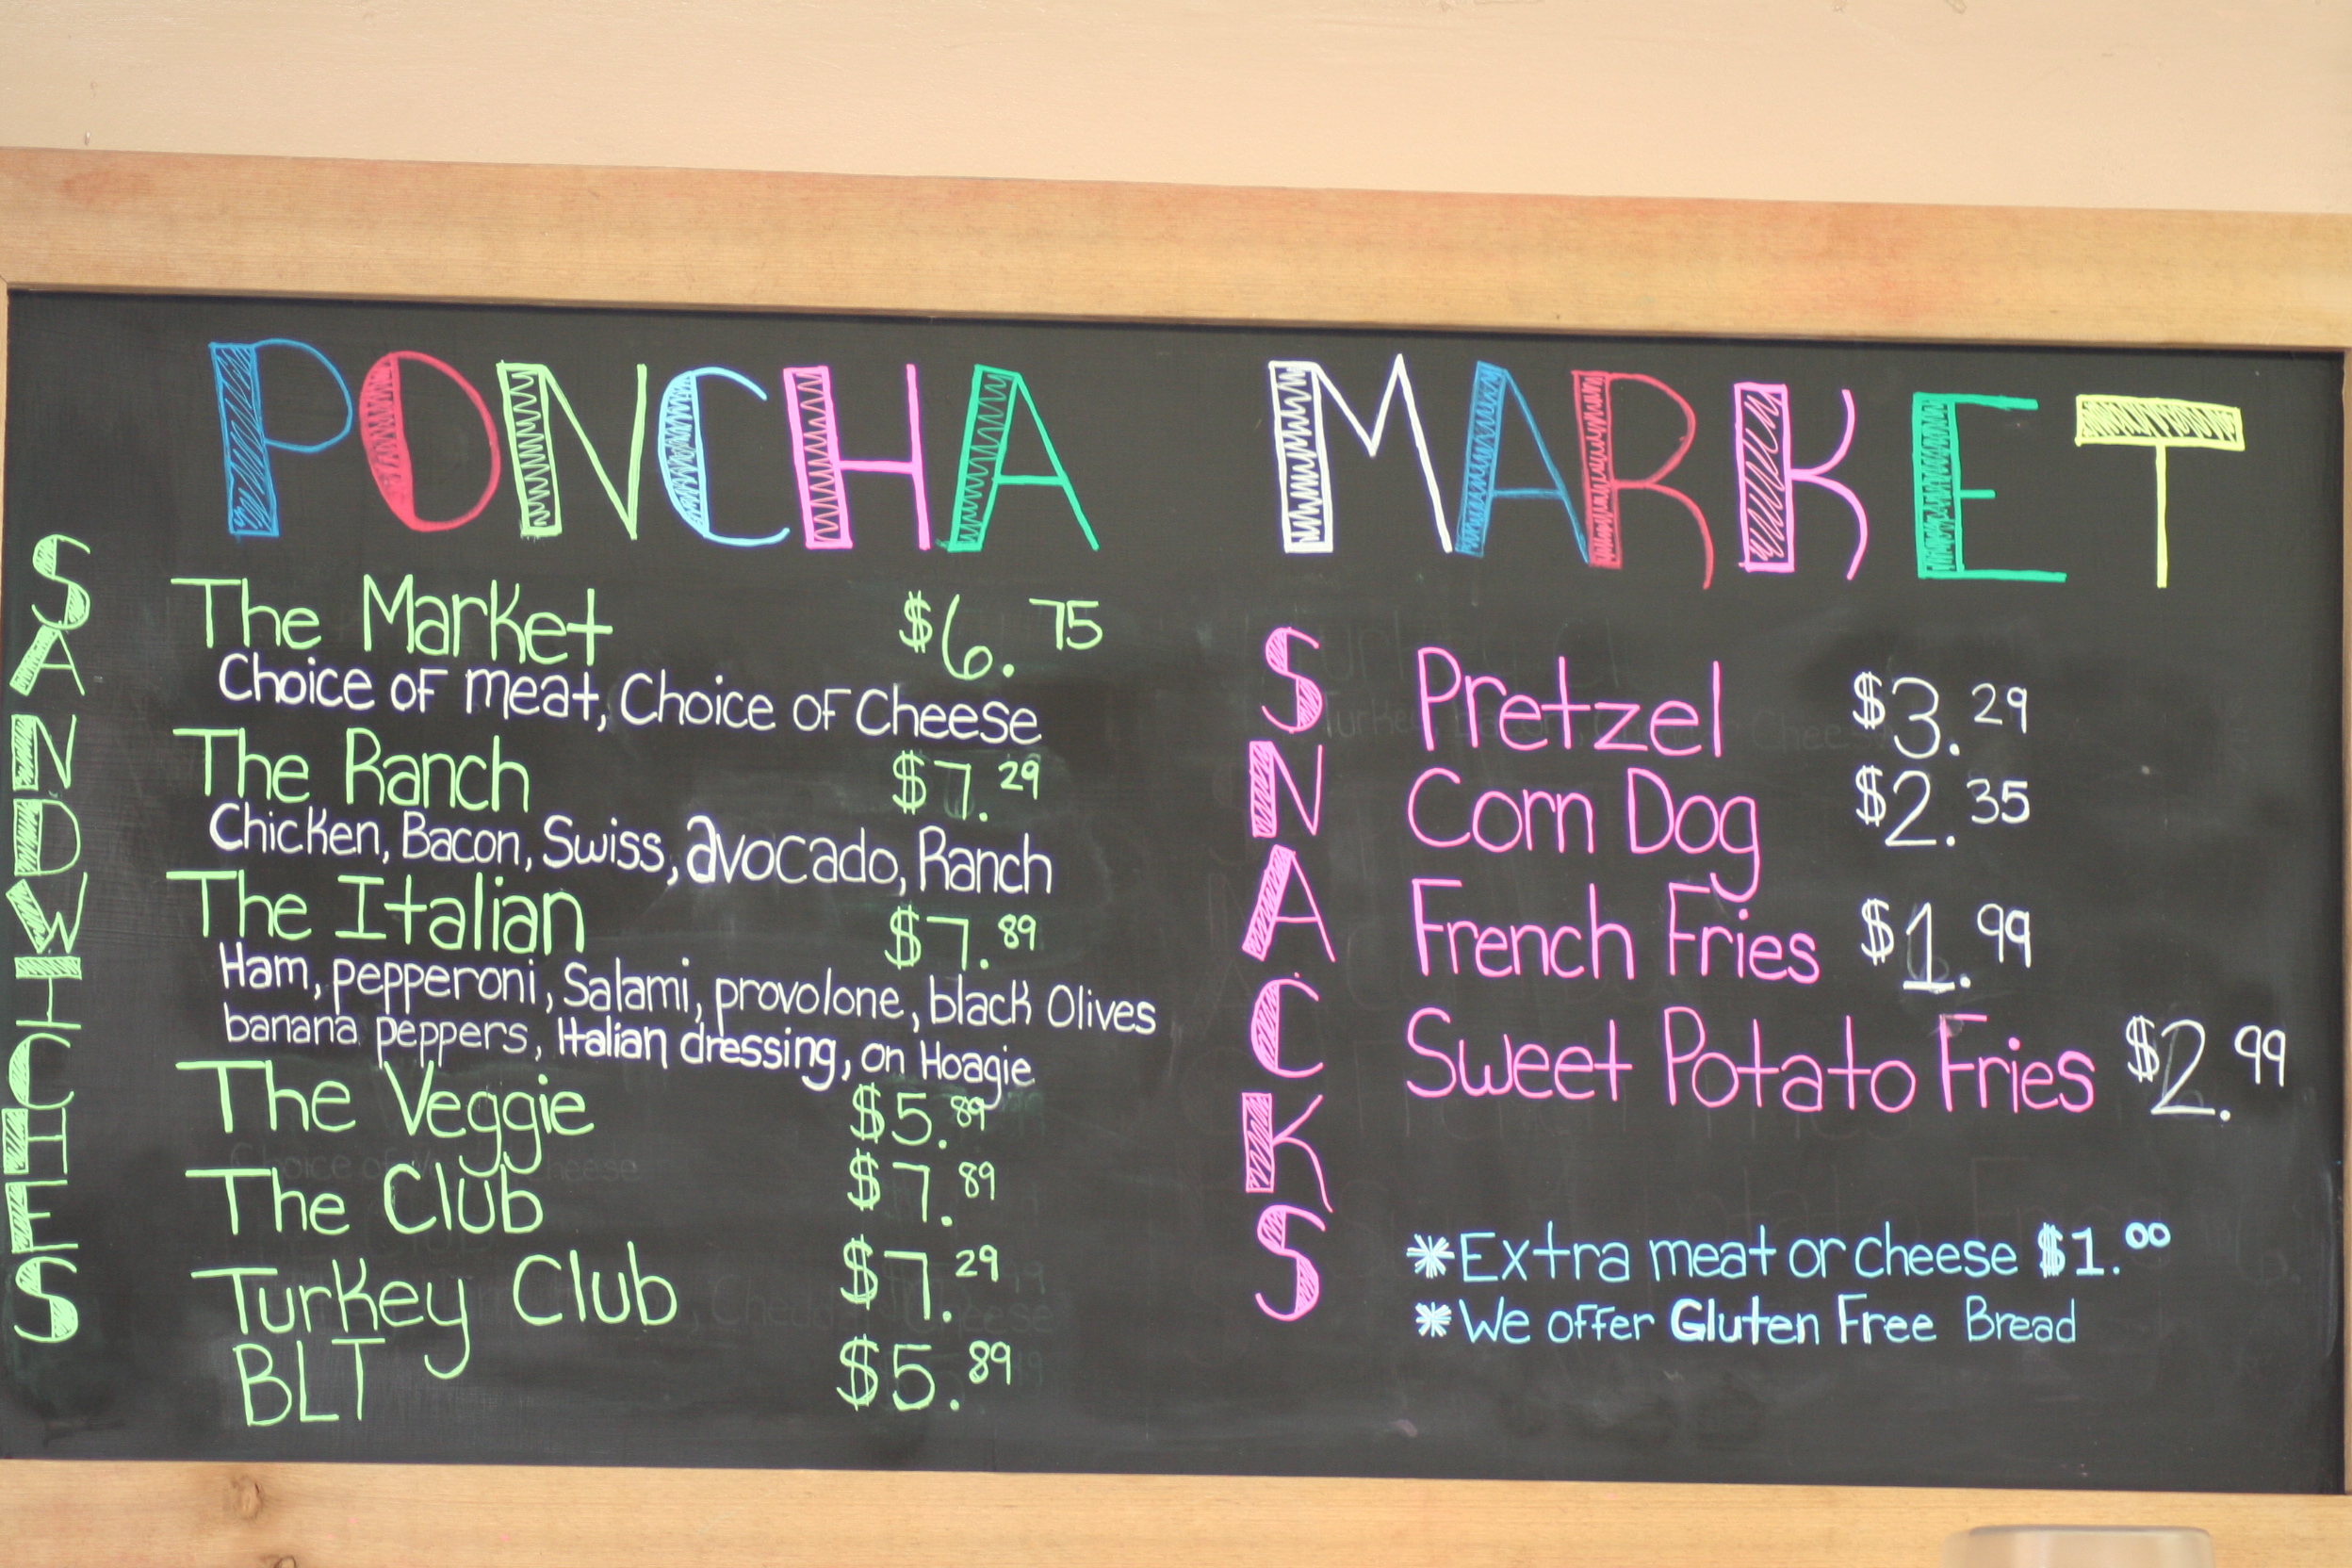 PONCHA MARKET
SANDWICHES
The Market $6.75
Choice of meat, Choice of Cheese
The Ranch $7.29
Chicken, Bacon, Swiss, avocado, Ranch
The Italian $7.89
Ham, pepperoni, Salami, provolone, black Olives
banana peppers, Italian dressing, on Hoagie
The Veggie $5.89
The Club $7.89
Turkey Club $7.29
BLT $5.89
SNACKS
Pretzel $3.29
Corn Dog $2.35
French Fries $1.99
Sweet Potato Fries $2.99
*Extra meat or cheese $1.00
*We offer Gluten Free Bread